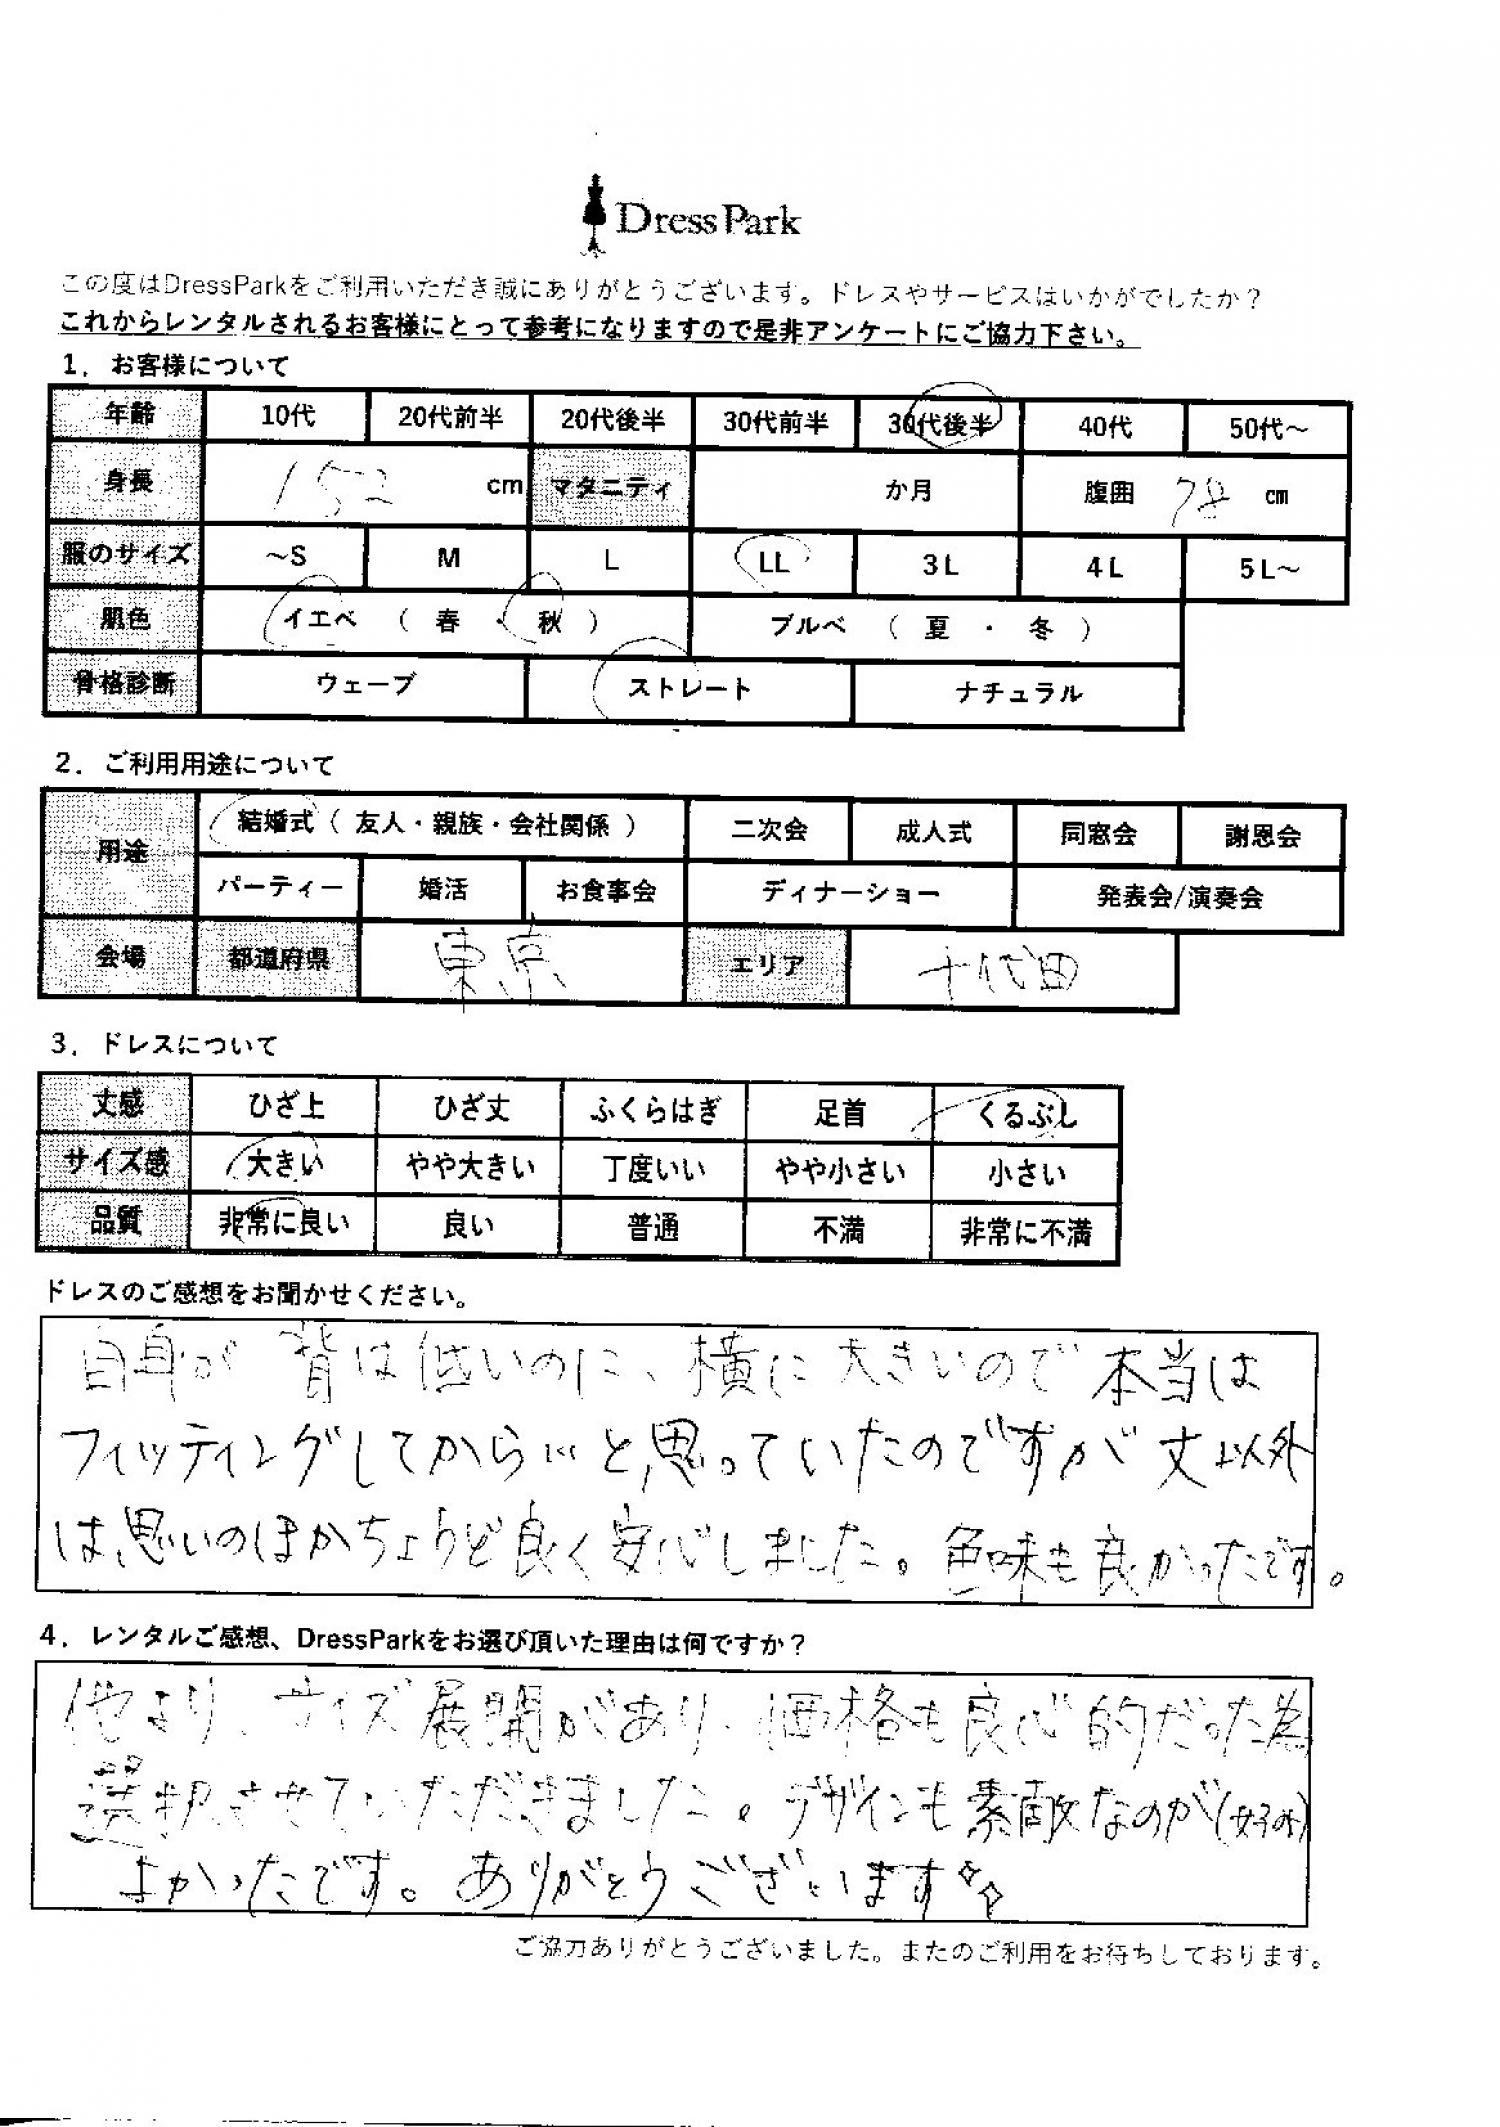 DressPark
この度はDressParkをご利用いただき誠にありがとうございます。ドレスやサービスはいかがでしたか？
これからレンタルされるお客様にとって参考になりますので是非アンケートにご協力下さい。
1．お客様について
年齢 10代 20代前半 20代後半 30代前半 30代後半 40代 50代～
身長 152 cm マタニティ か月 腹囲 78 cm
服のサイズ ～S M L LL 3L 4L 5L～
肌色 イエベ （ 春 ・ 秋 ） ブルベ （ 夏 ・ 冬 ）
骨格診断 ウェーブ ストレート ナチュラル
2．ご利用用途について
用途 結婚式（ 友人・親族・会社関係 ） 二次会 成人式 同窓会 謝恩会
パーティー 婚活 お食事会 ディナーショー 発表会/演奏会
会場 都道府県 東京 エリア 千代田
3．ドレスについて
丈感 ひざ上 ひざ丈 ふくらはぎ 足首 くるぶし
サイズ感 大きい やや大きい 丁度いい やや小さい 小さい
品質 非常に良い 良い 普通 不満 非常に不満
ドレスのご感想をお聞かせください。
自身が 背は低いのに、横に大きいので本当は
フィッティングしてから…と思っていたのですが 丈以外
は思いのほかちょうど良く安心しました。色味も良かったです。
4．レンタルご感想、DressParkをお選び頂いた理由は何ですか？
他より、サイズ展開があり、価格も良心的だった為
選択させていただきました。デザインも素敵なのが(好み)
よかったです。ありがとうございます
ご協力ありがとうございました。またのご利用をお待ちしております。